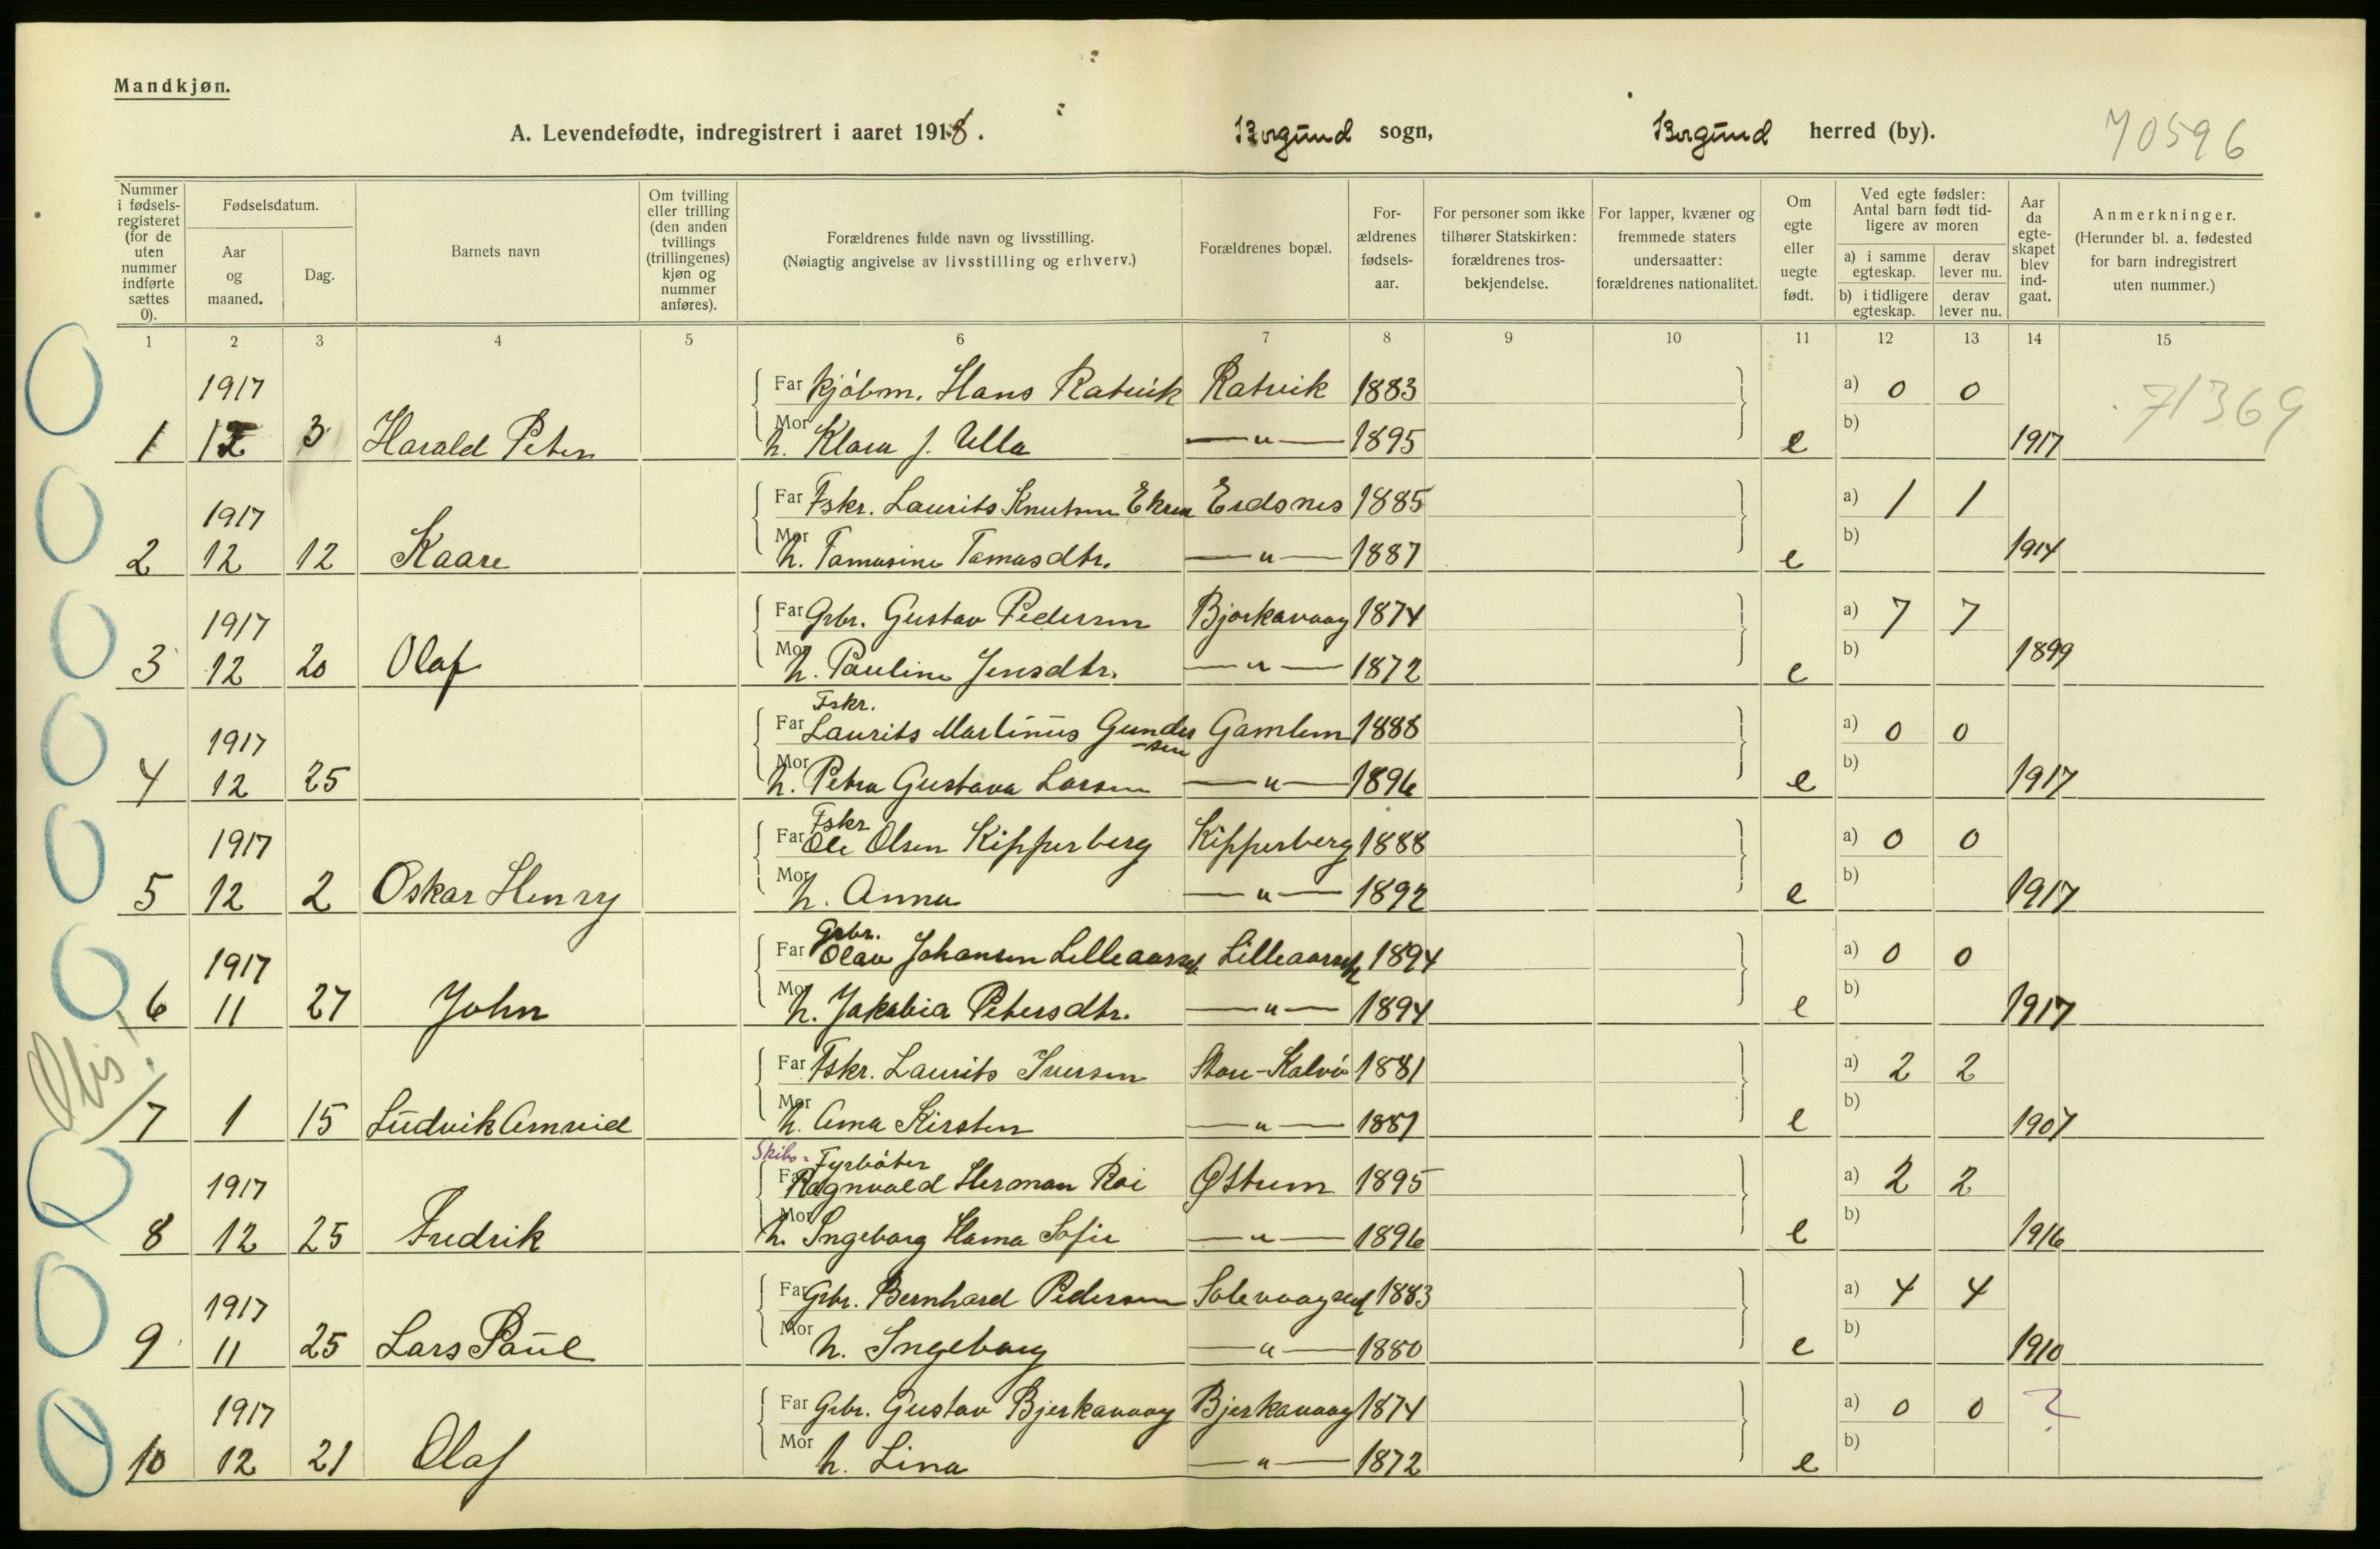 Mandkjøn.
A. Levendefødte, indregistrert i aaret 1918. Borgund sogn, Borgund herred (by). 70596
Nummer i fødsels-registeret (for de uten nummer indførte sættes 0).
Fødselsdatum.
Aar og maaned.
Dag.
Barnets navn
Om tvilling eller trilling (den anden tvillings (trillingenes) kjøn og nummer anføres).
Forældrenes fulde navn og livsstilling.
(Nøiagtig angivelse av livsstilling og erhverv.)
Forældrenes bopæl.
For-ældrenes fødsels-aar.
For personer som ikke tilhører Statskirken: forældrenes tros-bekjendelse.
For lapper, kvæner og fremmede staters undersaatter: forældrenes nationalitet.
Om egte eller uegte født.
Ved egte fødsler: Antal barn født tid-ligere av moren
a) i samme egteskap.
derav lever nu.
b) i tidligere egteskap.
derav lever nu.
Aar da egte-skapet blev ind-gaat.
Anmerkninger.
(Herunder bl. a. fødested for barn indregistrert uten nummer.)
1 2 3 4 5 6 7 8 9 10 11 12 13 14 15
1917 Far kjøbm. Hans Ratvik Ratvik 1883 a) 0 0 71369
1 12 3 Harald Peter Mor h. Klara f. Ulla —"— 1895 e b) 1917
1917 Far Fskr. Laurits Knutsen Ekren Eidsnes 1885 a) 1 1
2 12 12 Kaare Mor h. Tamasine Tamasdtr. —"— 1887 e b) 1914
1917 Far Grbr. Gustav Pedersen Bjorkavaag 1874 a) 7 7
3 12 20 Olaf Mor h. Pauline Jensdtr. —"— 1872 e b) 1899
Fskr.
1917 Far Laurits Martinus Gunder-sen Gamlem 1888 a) 0 0
4 12 25 Mor h. Petra Gustava Larsen —"— 1896 e b) 1917
Fskr
1917 Far Ole Olsen Kipperberg Kipperberg 1888 a) 0 0
5 12 2 Oskar Henry Mor h. Anna —"— 1892 e b) 1917
Grbr.
1917 Far Olav Johansen 1894 a) 0 0
6 11 27 John Mor h. Jakobia Petersdtr. —"— 1894 e b) 1917
Far Fskr. Laurits Iversen 1881 a) 2 2
7 1 15 Ludvik Mor h. Kirsten —"— 1881 e b) 1907
Skibs- Fyrbøter
1917 Far Ragnvald Herman Roi Østrem 1895 a) 2 2
8 12 25 Fredrik Mor h. Ingeborg Sofie —"— 1896 e b) 1916
1917 Far Grbr. Bernhard Pedersen 1883 a) 4 4
9 11 25 Lars Paul Mor h. Ingeborg —"— 1880 e b) 1910
1917 Far Grbr. Gustav Bjerkavaag Bjerkavaag 1874 a) 0 0 ?
10 12 21 Olaf Mor h. Lina —"— 1872 e b)